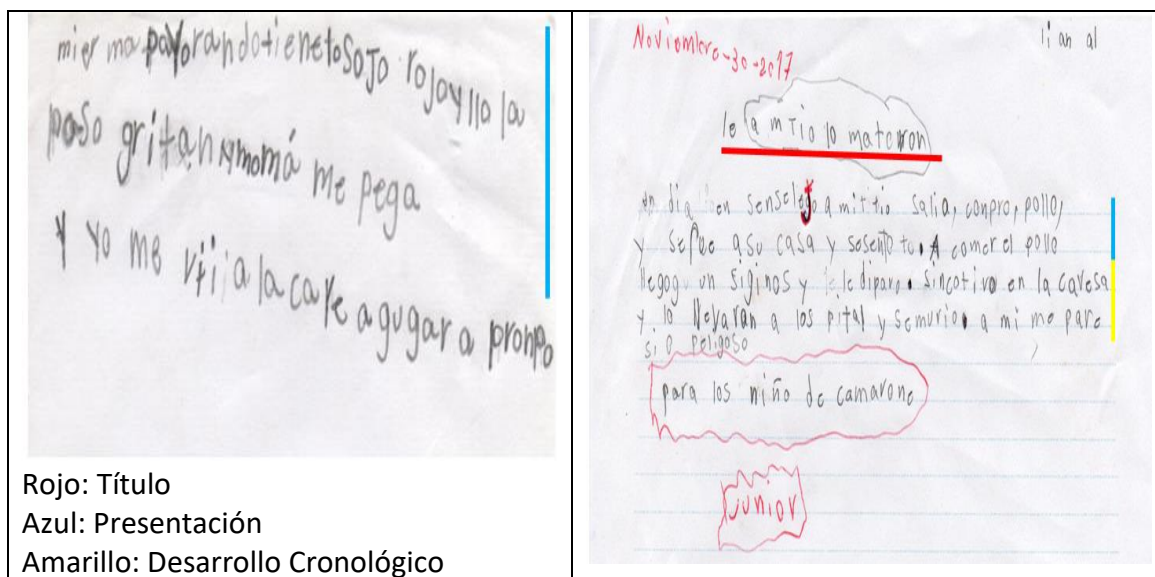 mier ma payorandotienetosojo rojoyllo la
poso gritan mamá me pega
y yo me vfiialacalle a gugar a prompo
Rojo: Título
Azul: Presentación
Amarillo: Desarrollo Cronológico
Noviembre-30-2017
lian al
le a mtio lo mataron
un dia en senselejo a mittio salia, conpro, pollo,
y sefue asu casa y sesento to. A comer el pollo
llegogu un siginos y le diparo. sincotiro en la cavesa
y lo llevaran a los pital y semurio. a mi me pare
si o peligoso
para los niño de camarone
junior